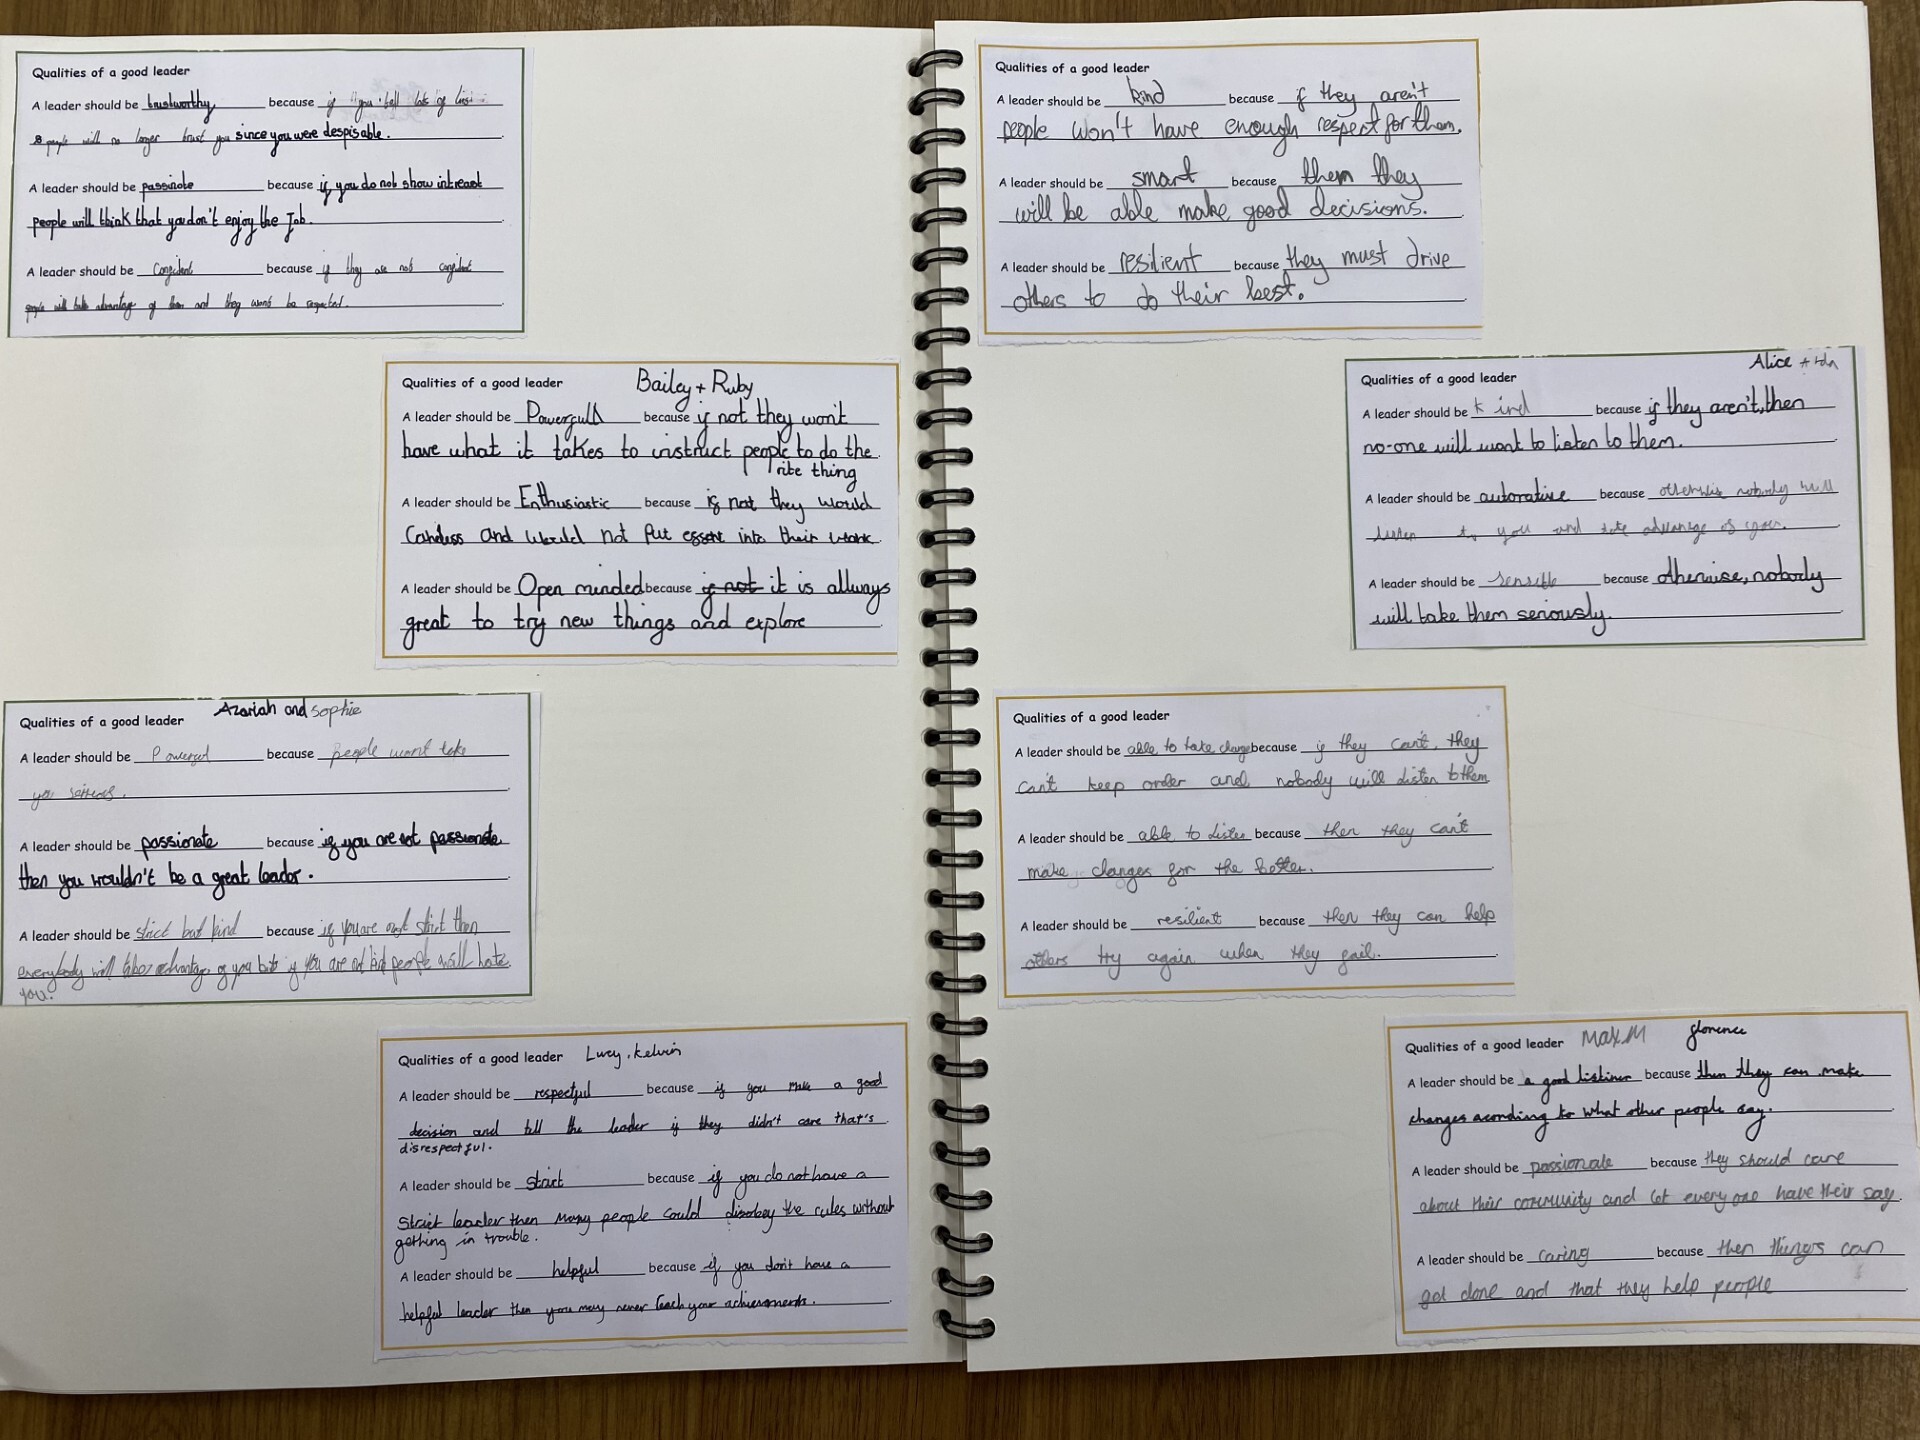 Qualities of a good leader
A leader should be trustworthy because if you tell lots of lies
people will no longer trust you since you were despisable.
A leader should be passinate because if you do not show intreast
people will think that you don't enjoy the Job.
A leader should be confident because if they are not confident
people will take advantage of them and they won't be respected.
Qualities of a good leader Bailey + Ruby
A leader should be Powerfull because if not they won't
have what it takes to instruct people to do the
rite thing
A leader should be Enthusiastic because if not they would
and would not put effort into their work
A leader should be Open minded because if not it is allways
great to try new things and explore
Qualities of a good leader Azariah and sophie
A leader should be Powerful because people wont take
you
A leader should be passionate because if you are not passionate
then you wouldn't be a great leader.
A leader should be strict but kind because if you are not strict then
everybody will take advantage of you but if you are not kind people will hate
you.
Qualities of a good leader Lucy, Kelvin
A leader should be respectful because if you make a good
decision and tell the leader if they didn't care that's
disrespectful.
A leader should be strict because if you do not have a
strict leader then many people could disobey the rules without
getting in trouble.
A leader should be helpful because if you don't have a
helpful leader then you may never reach your achievements.
Qualities of a good leader
A leader should be kind because if they aren't
people won't have enough respect for them.
A leader should be smart because them they
will be able make good decisions.
A leader should be resilient because they must drive
others to do their best.
Alice +
Qualities of a good leader
A leader should be kind because if they aren't, then
no-one will want to listen to them.
A leader should be autorative because otherwise nobody will
listen to you and take advantage of you.
A leader should be sensible because otherwise, nobody
will take them seriously.
Qualities of a good leader
A leader should be able to take charge because if they can't, they
can't keep order and nobody will listen to them
A leader should be able to listen because then they can't
make changes for the better.
A leader should be resilient because then they can help
others try again when they fail.
Qualities of a good leader Max.M florence
A leader should be a good listiner because then they can make
changes acording to what other people say.
A leader should be passionate because they should care
about their community and let every one have their say.
A leader should be caring because then things can
get done and that they help people